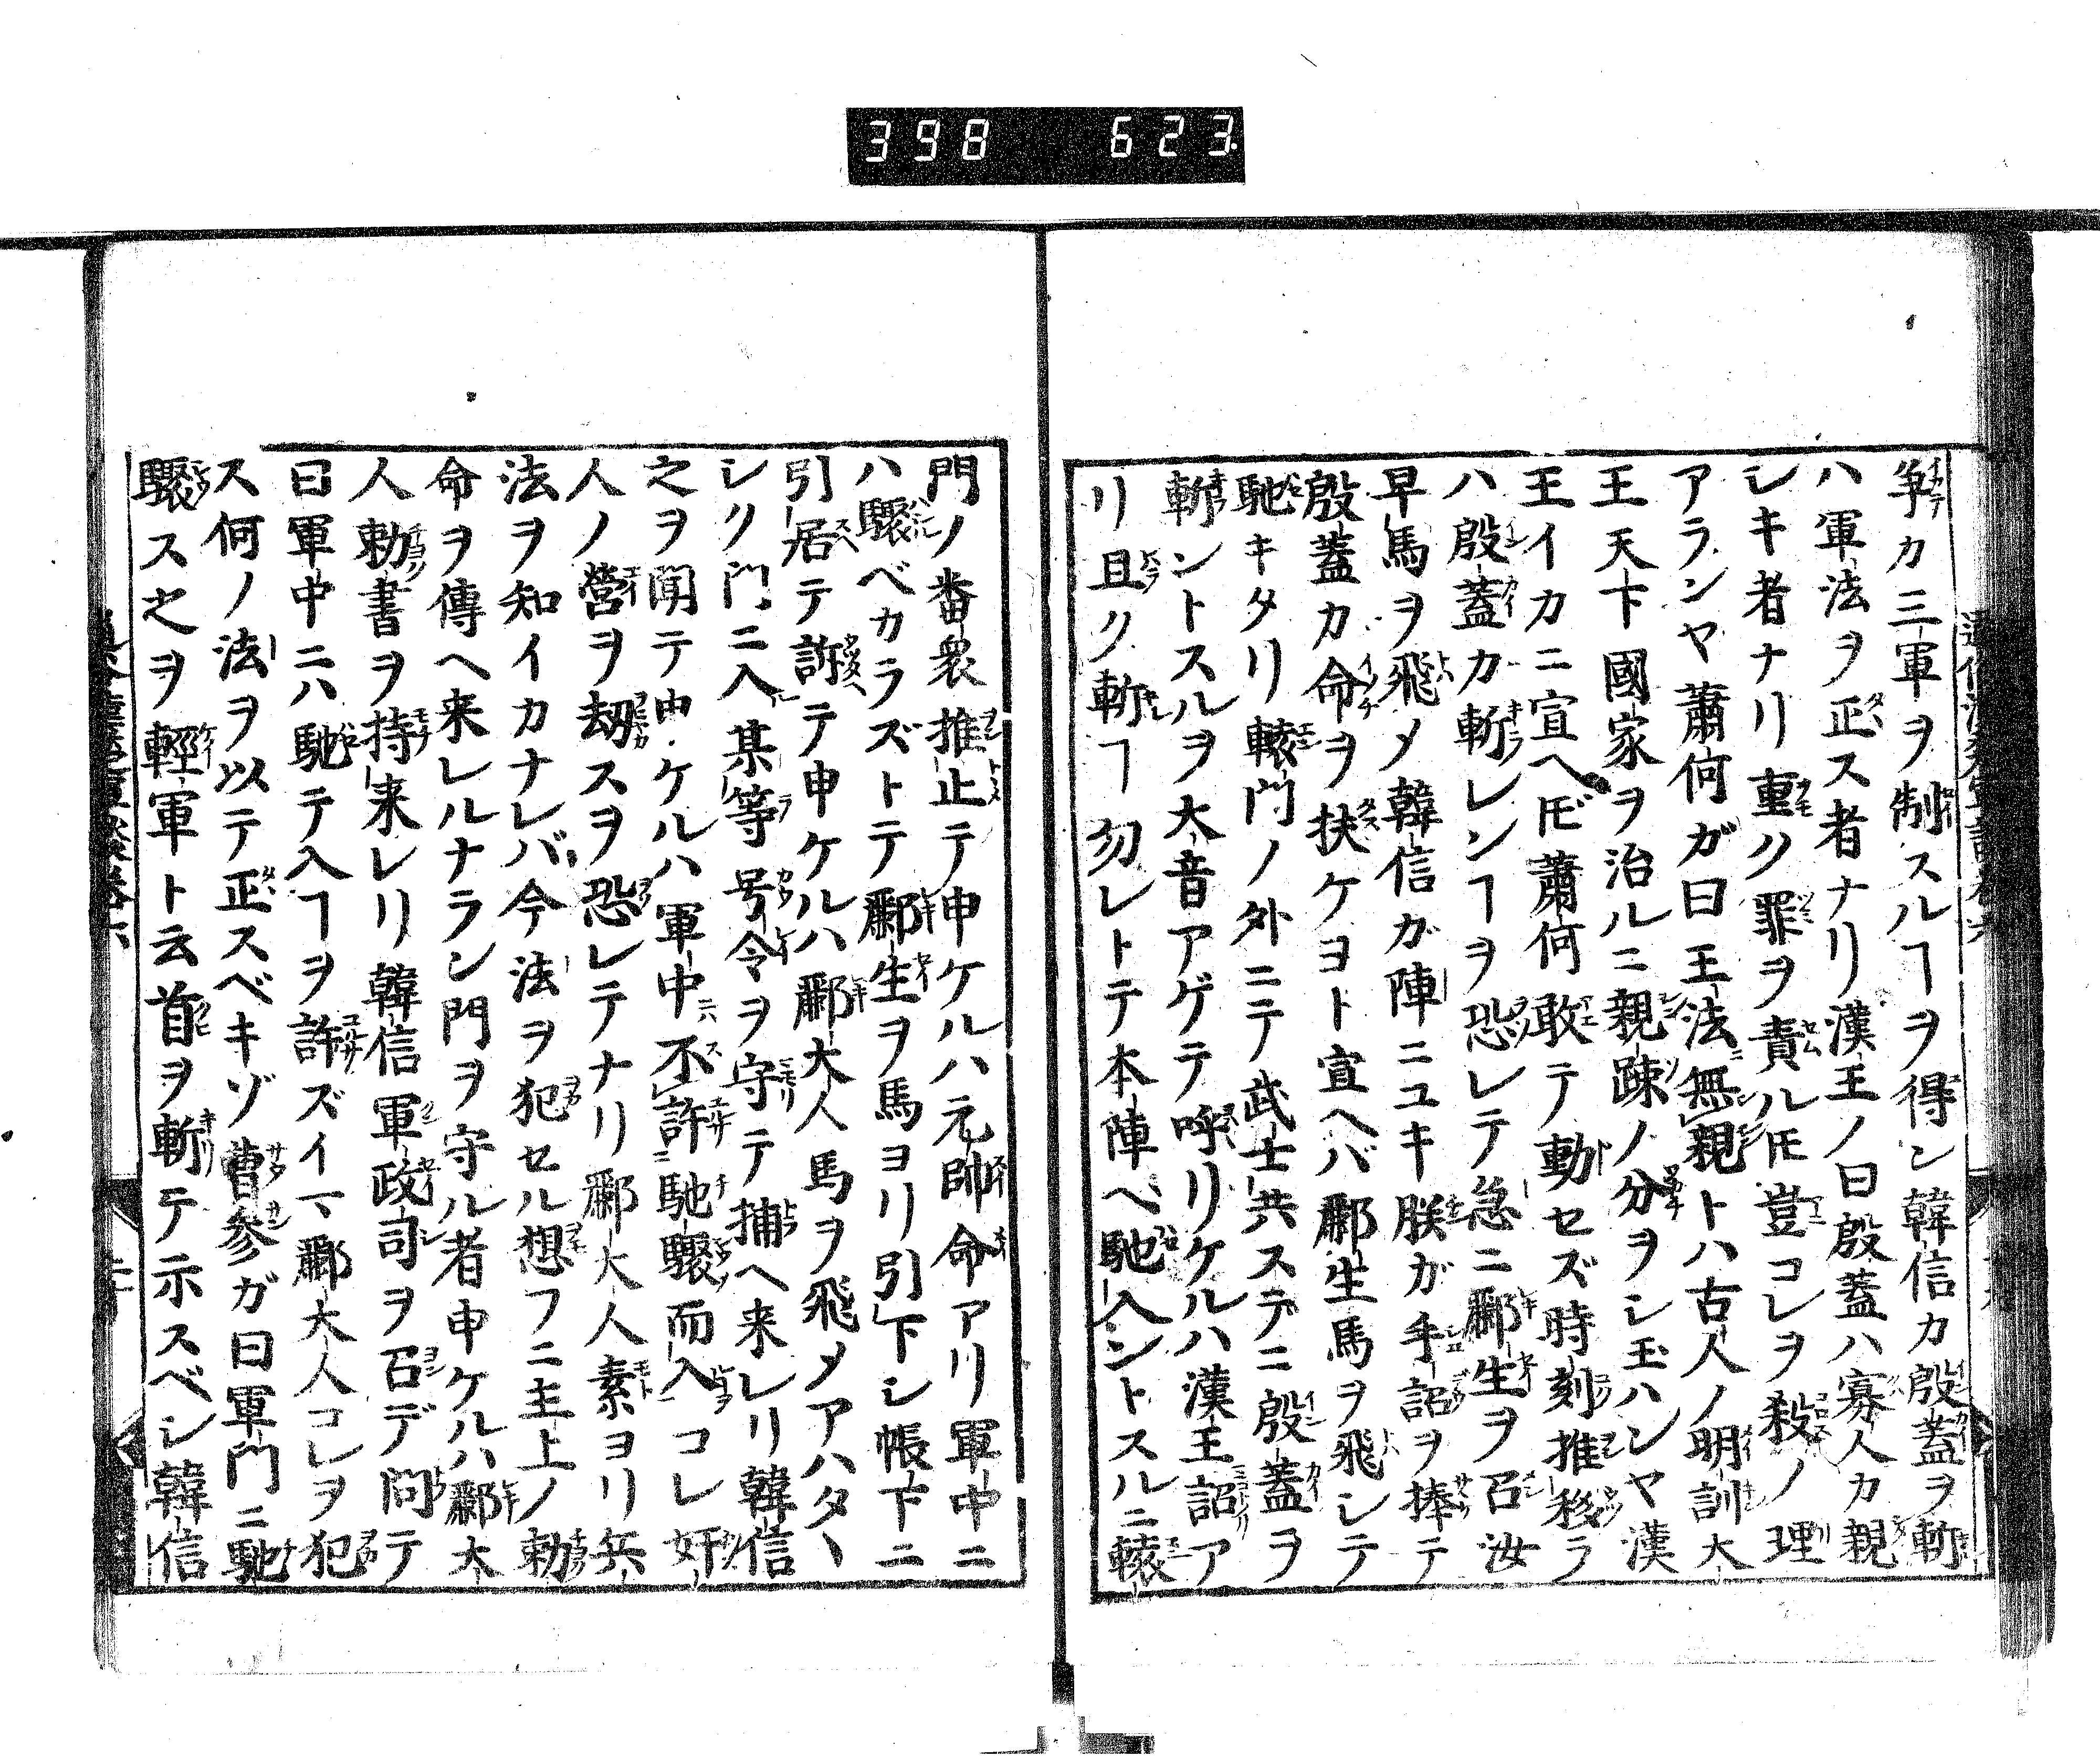 398 623
争カ三軍ヲ制スルヿヲ得ン韓信カ殷蓋ヲ斬
ハ軍法ヲ正ス者ナリ漢王ノ曰殷蓋ハ寡人カ親
シキ者ナリ重ク罪ヲ責ルトモ豈コレヲ殺ノ理
アランヤ蕭何ガ曰王法無親トハ古人ノ明訓大
王天下國家ヲ治ルニ親疎ノ分ヲシ玉ハンヤ漢
王イカニ宣ヘトモ蕭何敢テ動セズ時刻推移ラ
ハ殷蓋カ斬レンヿヲ恐レテ急ニ酈生ヲ召汝
早馬ヲ飛メ韓信ガ陣ニユキ朕ガ手詔ヲ捧テ
殷蓋カ命ヲ扶ケヨト宣ヘバ酈生馬ヲ飛シテ
馳キタリ轅門ノ外ニテ武士共スデニ殷蓋ヲ
斬ントスルヲ大音アゲテ呼リケルハ漢王詔ア
リ且ク斬ヿ勿レトテ本陣ヘ馳入ントスルニ轅
門ノ番衆推止テ申ケルハ元帥命アリ軍中ニ
ハ驟ベカラズトテ酈生ヲ馬ヨリ引下シ帳下ニ
引居テ訴テ申ケルハ酈大人馬ヲ飛メアハタヽ
シク門ニ入某等号令ヲ守テ捕ヘ来レリ韓信
之ヲ聞テ申ケルハ軍中不許馳驟而入コレ奸
人ノ營ヲ劫スヲ恐レテナリ酈大人素ヨリ兵
法ヲ知イカナレバ今法ヲ犯セル想フニ主上ノ勅
命ヲ傳ヘ来レルナラン門ヲ守ル者申ケルハ酈大
人勅書ヲ持来レリ韓信軍政司ヲ召デ問テ
曰軍中ニハ馳テ入ヿヲ許ズイマ酈大人コレヲ犯
ス何ノ法ヲ以テ正スベキゾ曹参ガ曰軍門ニ馳
驟ス之ヲ輕軍ト云首ヲ斬テ示スベシ韓信